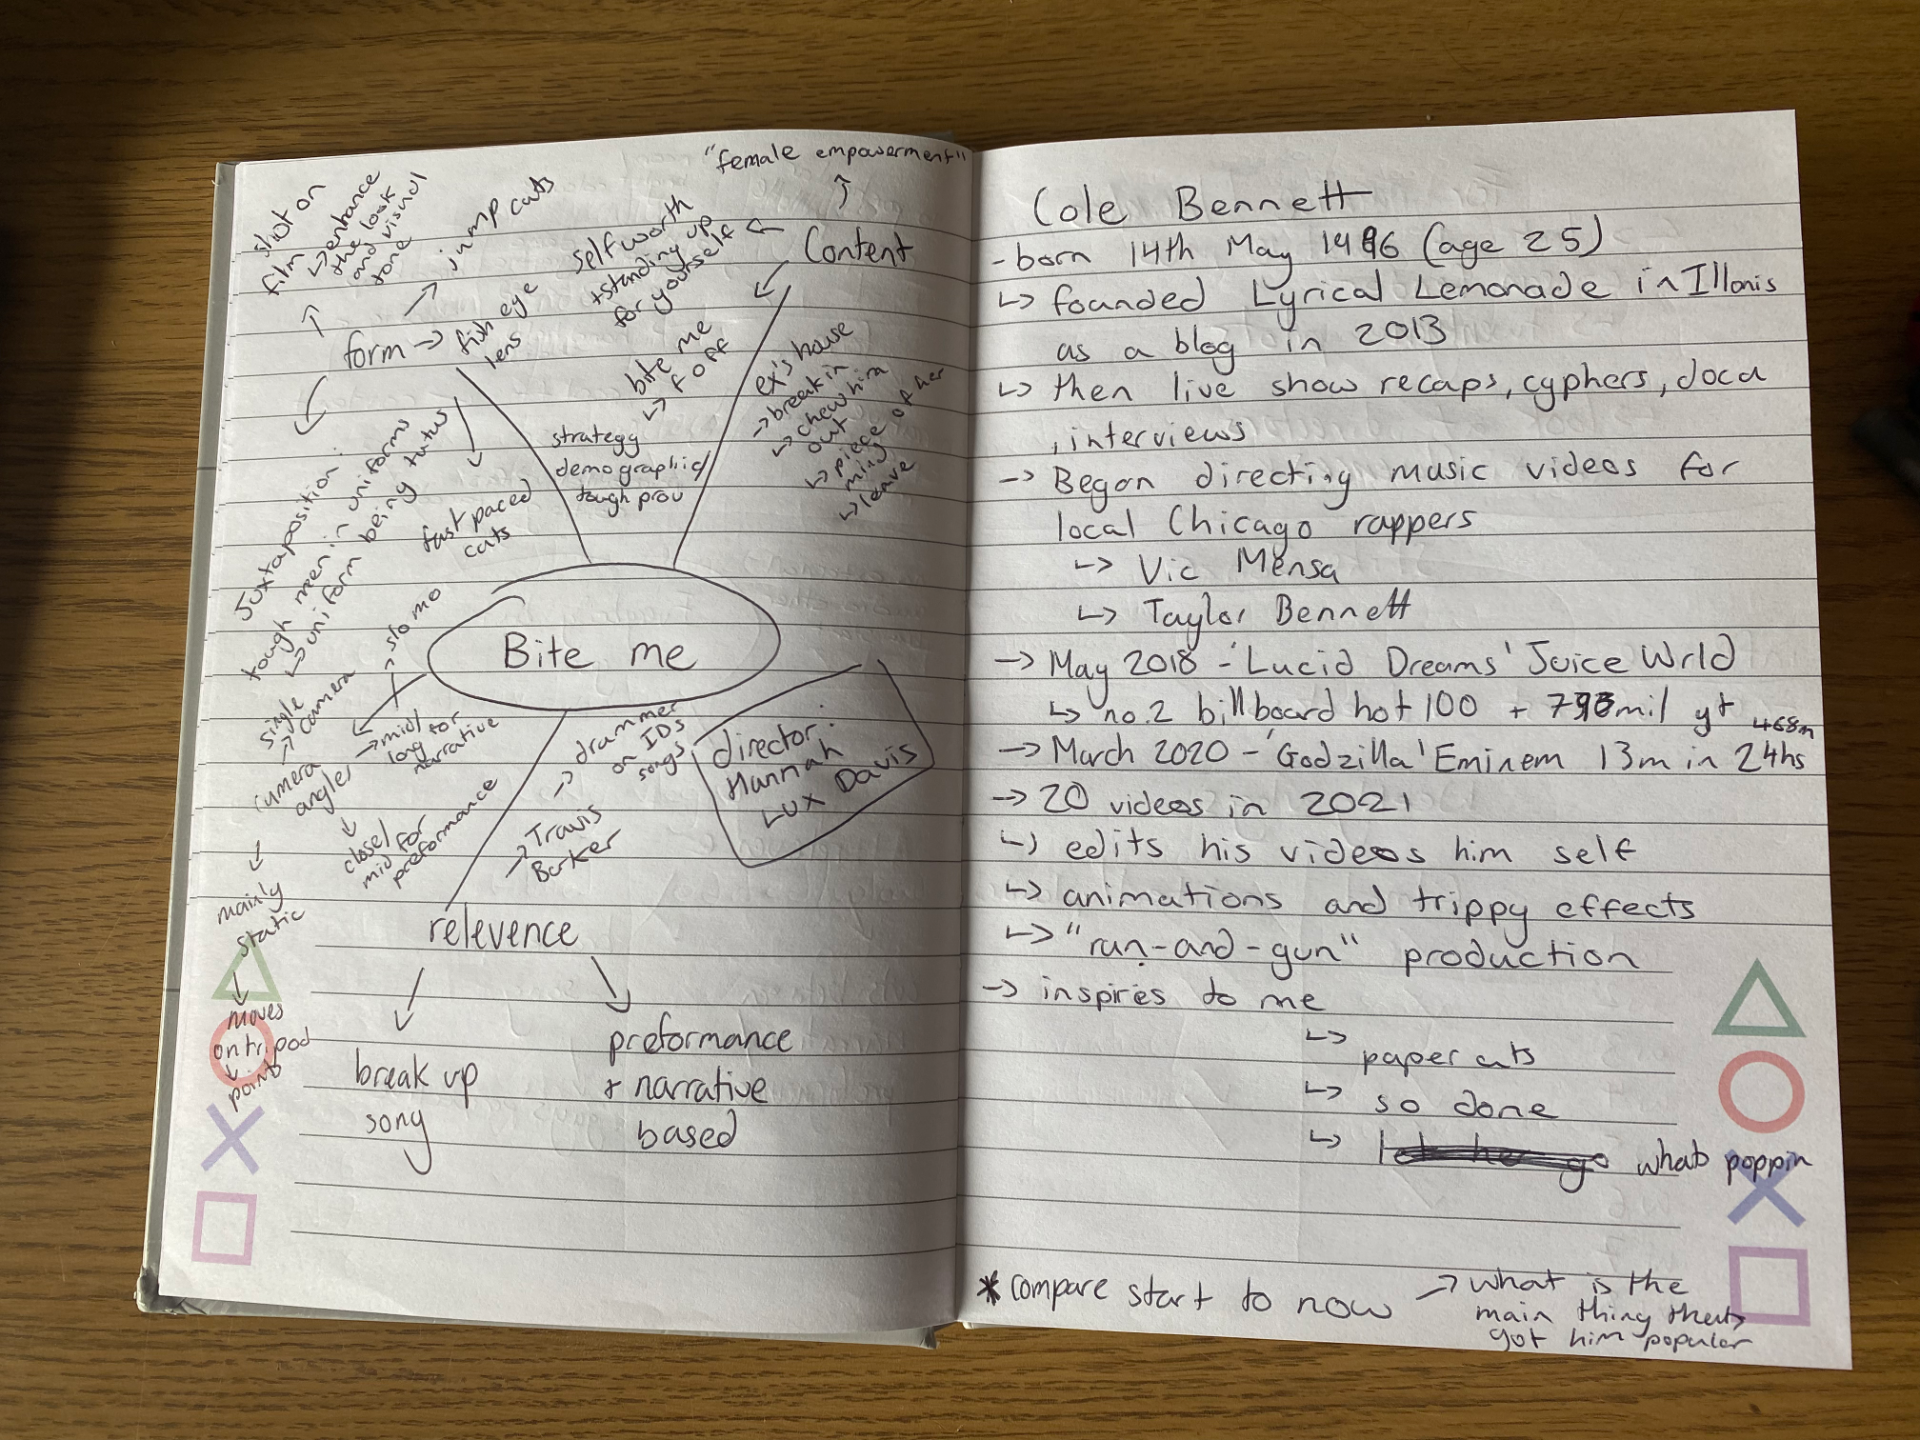 "female empowerment"
Content
self worth
+standing up
for yourself
bite me
↳ f off
ex's house
→ break in
↳ chew him
out
↳ piece of her
ming
↳ leave
strategy
demographic/
tough prov
shot on
film
↳ enhance
the look
and visual
tone
jump cuts
form → fish eye
lens
fast paced
cuts
Juxtaposition:
tough men in uniforms
↳ uniform being tutus
Bite me
→ slo mo
single
→ camera
camera
angles
→ mid/
long for
narrative
↓
close/
mid for
preformance
mainly
static
↓
moves
on tripod
↓
point
→ drummer
on IDs
songs
→ Travis
Barker
director:
Hannah
Lux Davis
relevence
break up
song
preformance
+ narrative
based
Cole Bennett
- born 14th May 1996 (age 25)
↳ founded Lyrical Lemonade in Illonis
as a blog in 2013
↳ then live show recaps, cyphers, doca
, interviews
→ Began directing music videos for
local Chicago rappers
↳ Vic Mensa
↳ Taylor Bennett
→ May 2018 - 'Lucid Dreams' Juice Wrld
↳ no.2 billboard hot 100 + mil yt
468m
→ March 2020 - 'Godzilla' Eminem 13m in 24hs
→ 20 videos in 2021
↳ edits his videos him self
↳ animations and trippy effects
↳ "run-and-gun" production
→ inspires to me
↳ paper cuts
↳ so done
↳ let her go whats poppin
* compare start to now → what is the
main thing thats
got him popular